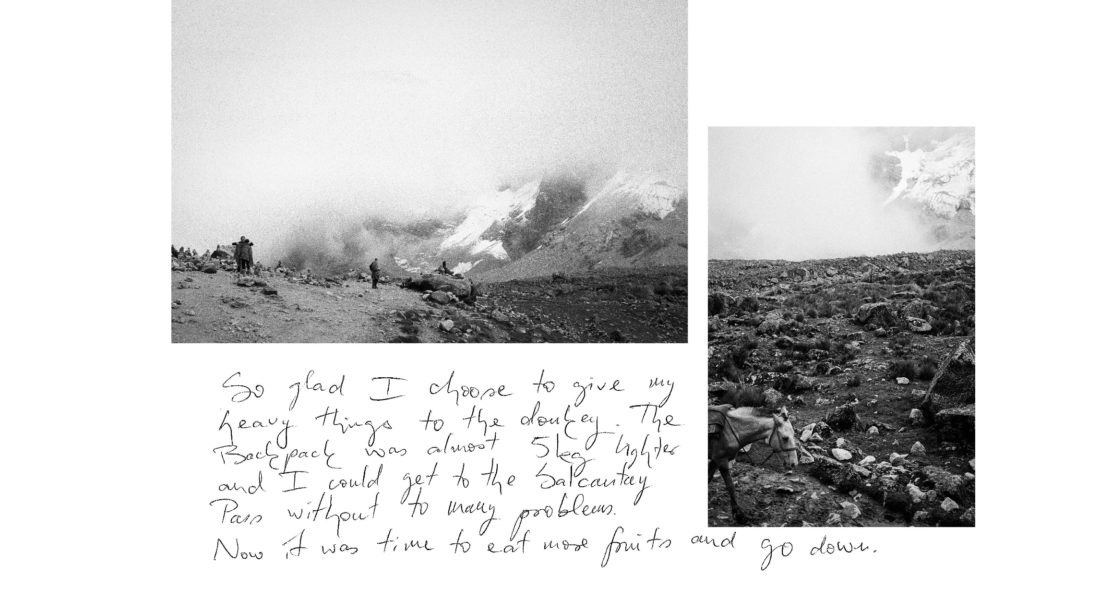 So glad I choose to give my
heavy things to the donkey. The
Backpack was almost 5kg lighter
and I could get to the Salcantay
Pass without to many problems.
Now it was time to eat more fruits and go down.